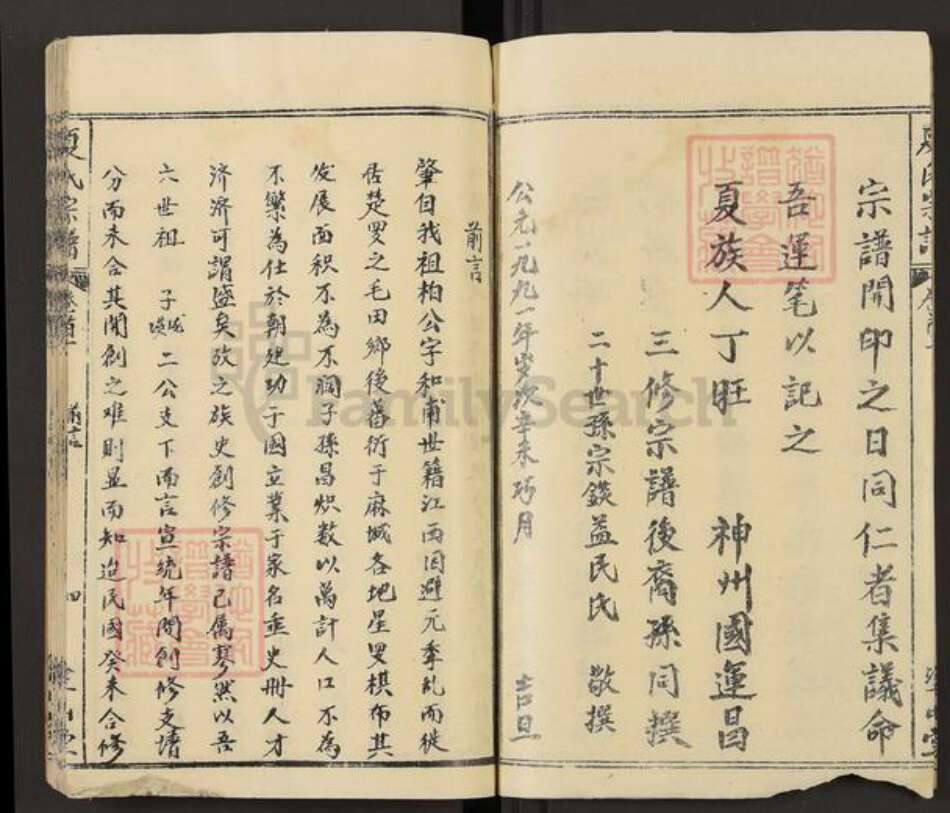 宗譜開印之日同仁者集議命
吾運笔以記之
夏族人丁旺 神州國運昌
三修宗譜後裔孫同撰
二十世孫宗鍈益民氏 敬撰
公元一九九一年岁次辛未 月 吉旦
前言
肇自我祖柏公字和甫世籍江西因避元季乱而徙
居楚罗之毛田鄉後蕃衍于麻城各地星罗棋布其
发展面积不為不闊子孫昌炽数以萬計人口不為
不繁為仕於朝建功于國立業于家名垂史冊人才
济济可謂盛矣攷之族史創修宗譜已属寥然以吾
六世祖 子 二公支下而言宣統年間創修支譜
分而未合其開創之难則显而知迄民國癸未合修
夏氏宗譜
卷首
前言
四
FamilySearch